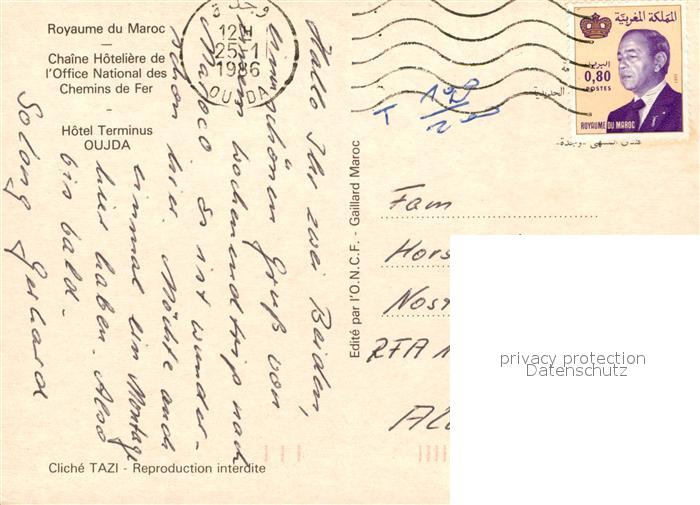 Royaume du Maroc
Chaîne Hôtelière de
l'Office National des
Chemins de Fer
Hôtel Terminus
OUJDA
Hallo Ihr zwei Beiden,
einen schönen Gruß von
einem wochenendtrip nach
Maroco. Es ist wunder-
schön hier. Möchte auch
einmal ein Montage
hier haben. Also
bis bald.
Solong Gerhard
Cliché TAZI - Reproduction interdite
Edité par l'O.N.C.F. - Gaillard Maroc
وجدة
12H
25-1
1986
OUJDA
المملكة المغربية
البريد
0,80
POSTES
ROYAUME DU MAROC
T
Fam
Hors
Nost
RFA
privacy protection
Datenschutz